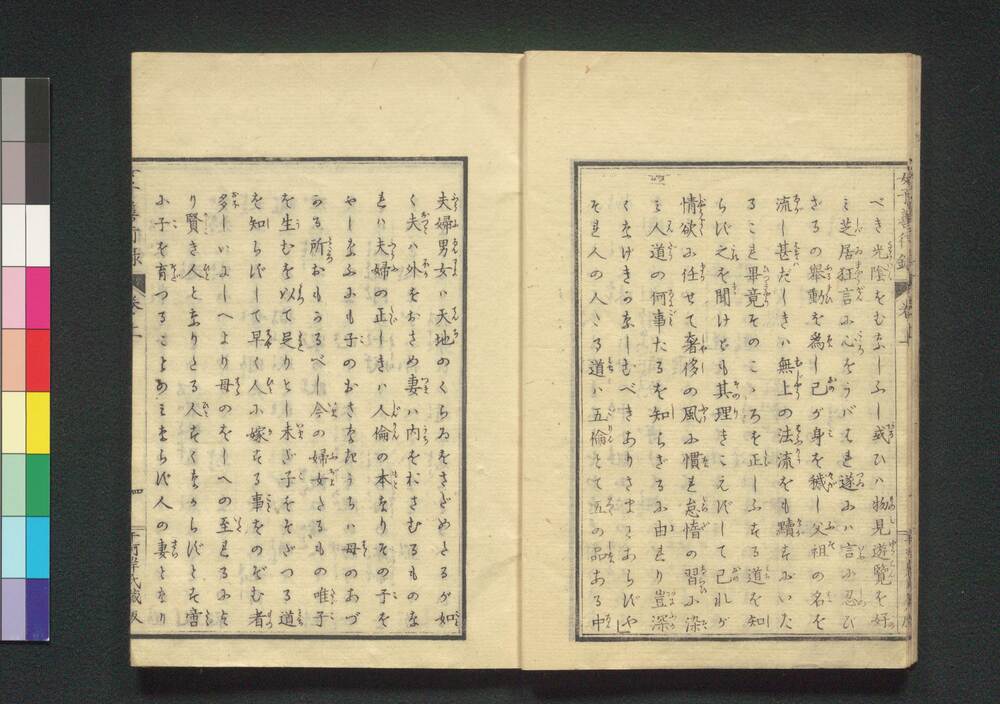 べき光陰をむなしふし或ひハ物見遊覧を好
ミ芝居狂言に心をうバはれ遂にハ言に忍び
ざるの挙動を為し己が身を穢し父祖の名を
流し甚だしきハ無上の法流をも黷すにいた
ることれ畢竟そのこゝろを正しふする道を知
らずこれを聞けども其理きこえずして己れが
情欲に任せて奢侈の風に慣れ怠惰の習に染
ミ人道の何事たるを知らざるに由れり豈深
くなげきかなしむべきありさまにあらずや
それ人の人たる道ハ五倫とて五の品ある中
夫婦男女ハ天地のくらゐをさだめたるが如
く夫ハ外をおさめ妻ハ内をおさむるものな
れハ夫婦の正しきハ人倫の本なりその子を
やしなふにも子のおさなきうちハ母のあづ
かる所おもかるべし今の婦女たるもの唯子
を生むを以て足りとし未だ子をそだつる道
を知らずして早く人に嫁する事をのぞむ者
多しいにしへより母のをしへの至れるによ
り賢き人となりたる人すくなからずとす啻
に子を育つることのミならず人の妻となり
女子善行録
巻上
善行録
巻上
四